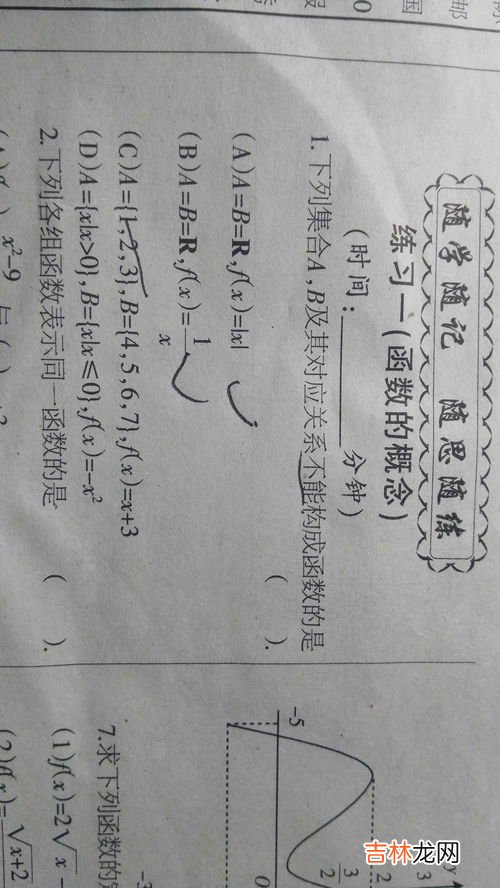 随学随记 随思随练
练习一(函数的概念)
(时间:________分钟)
1.下列集合A,B及其对应关系不能构成函数的是
( ).
(A)A=B=R,f(x)=|x|
(B)A=B=R,f(x)=1/x
(C)A={1,2,3},B={4,5,6,7},f(x)=x+3
(D)A={x|x>0},B={x|x≤0},f(x)=-x²
2.下列各组函数表示同一函数的是
( ).
x²-9 与
-5
3/2
2
3
0
y
7.求下列函数的
(1)f(x)=2√x-
(2)f(x)=√x+2
吉林龙网